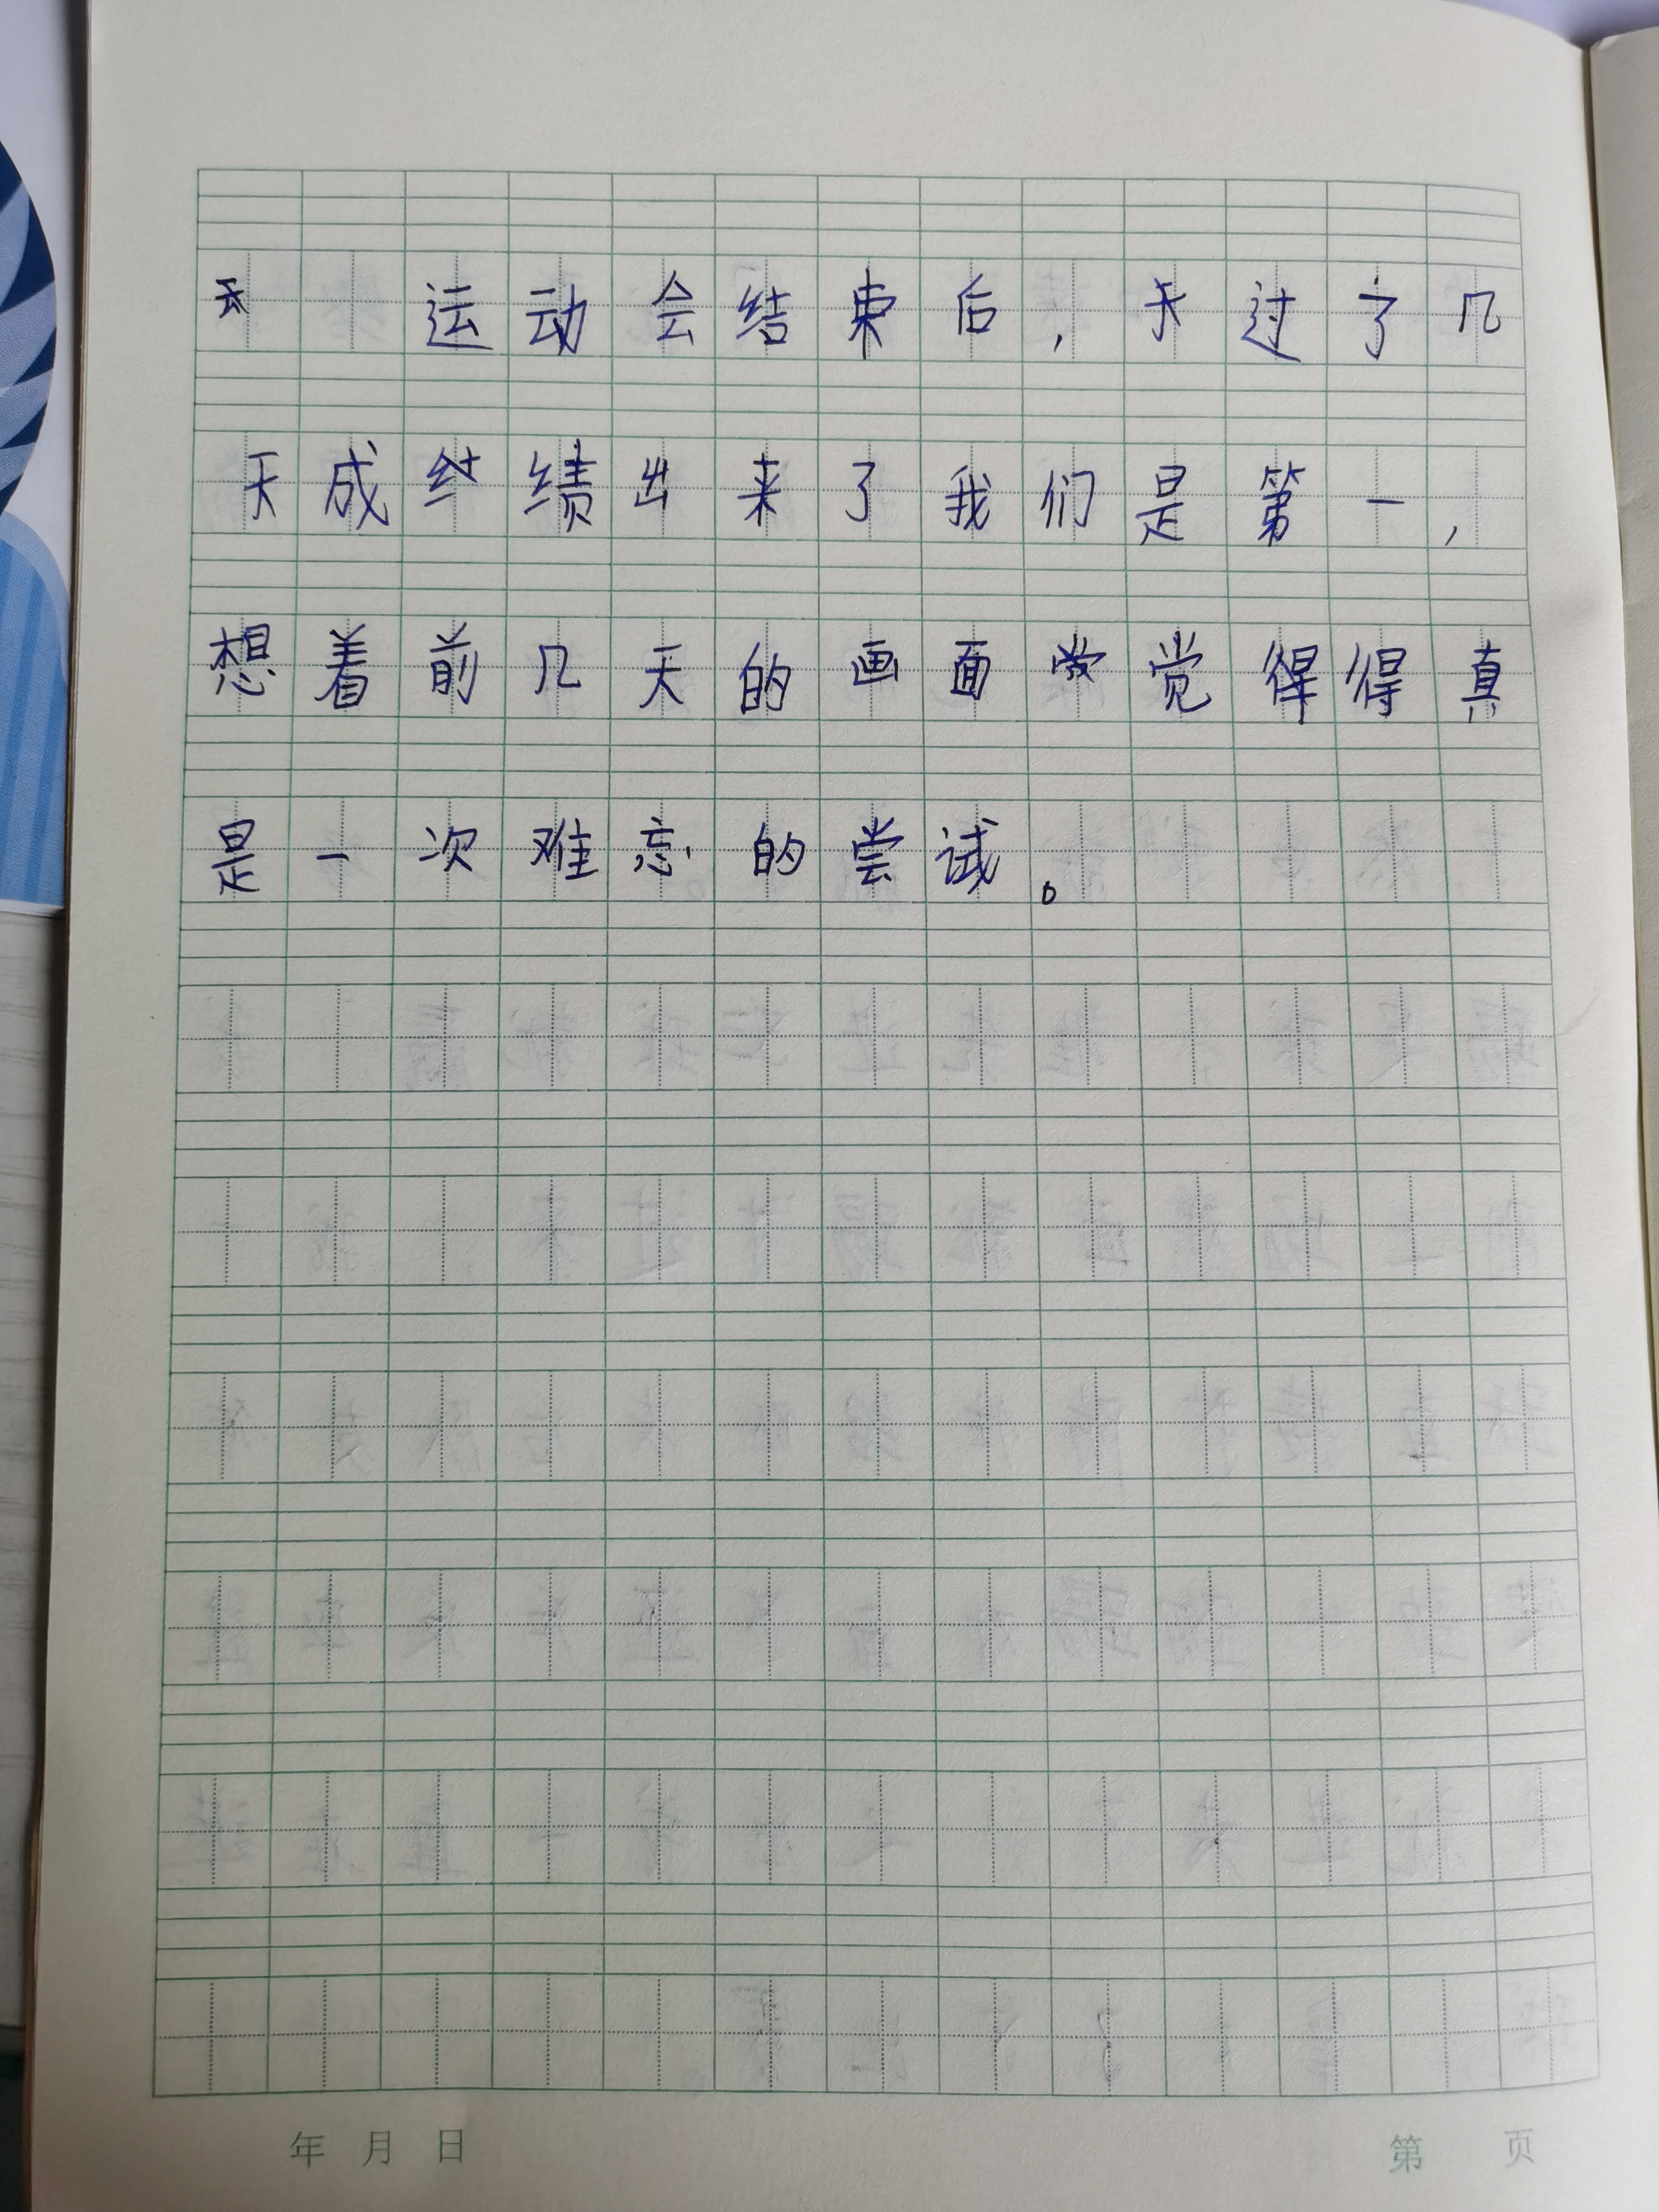 运动会结束后，天过了几
天成绩出来了我们是第一，
想着前几天的画面觉得得真
是一次难忘的尝试。
年 月 日 第 页